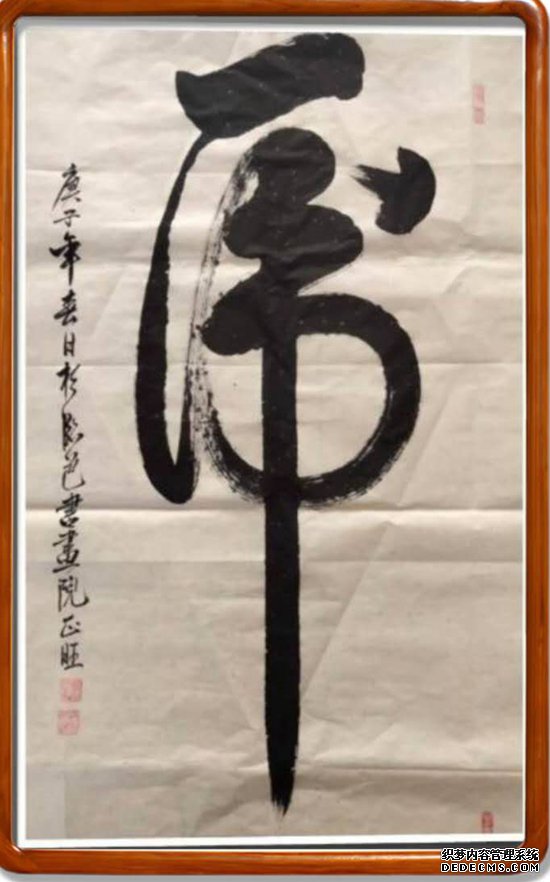 虎
庚子年春日於邑書畫院正旺
织梦内容管理系统
DEDECMS.COM